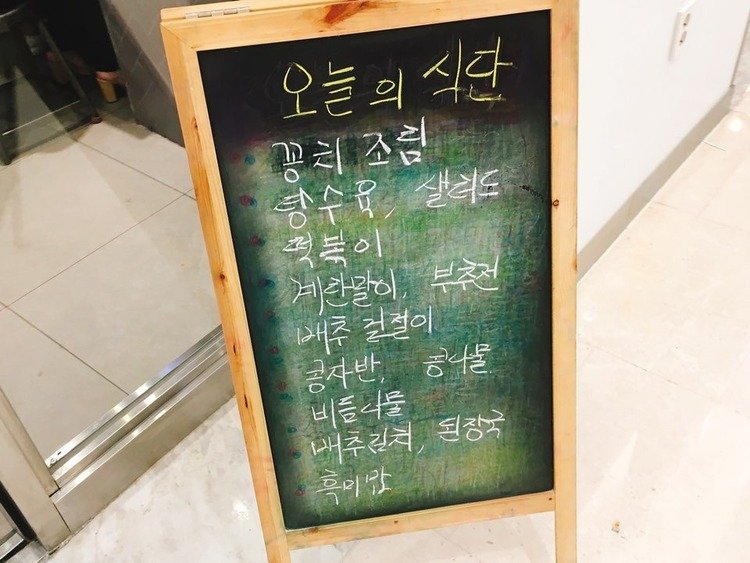 오늘의 식단
꽁치 조림
탕수육, 샐러드
떡볶이
계란말이, 부추전
배추 겉절이
콩자반, 콩나물
비름나물
배추김치, 된장국
흑미밥